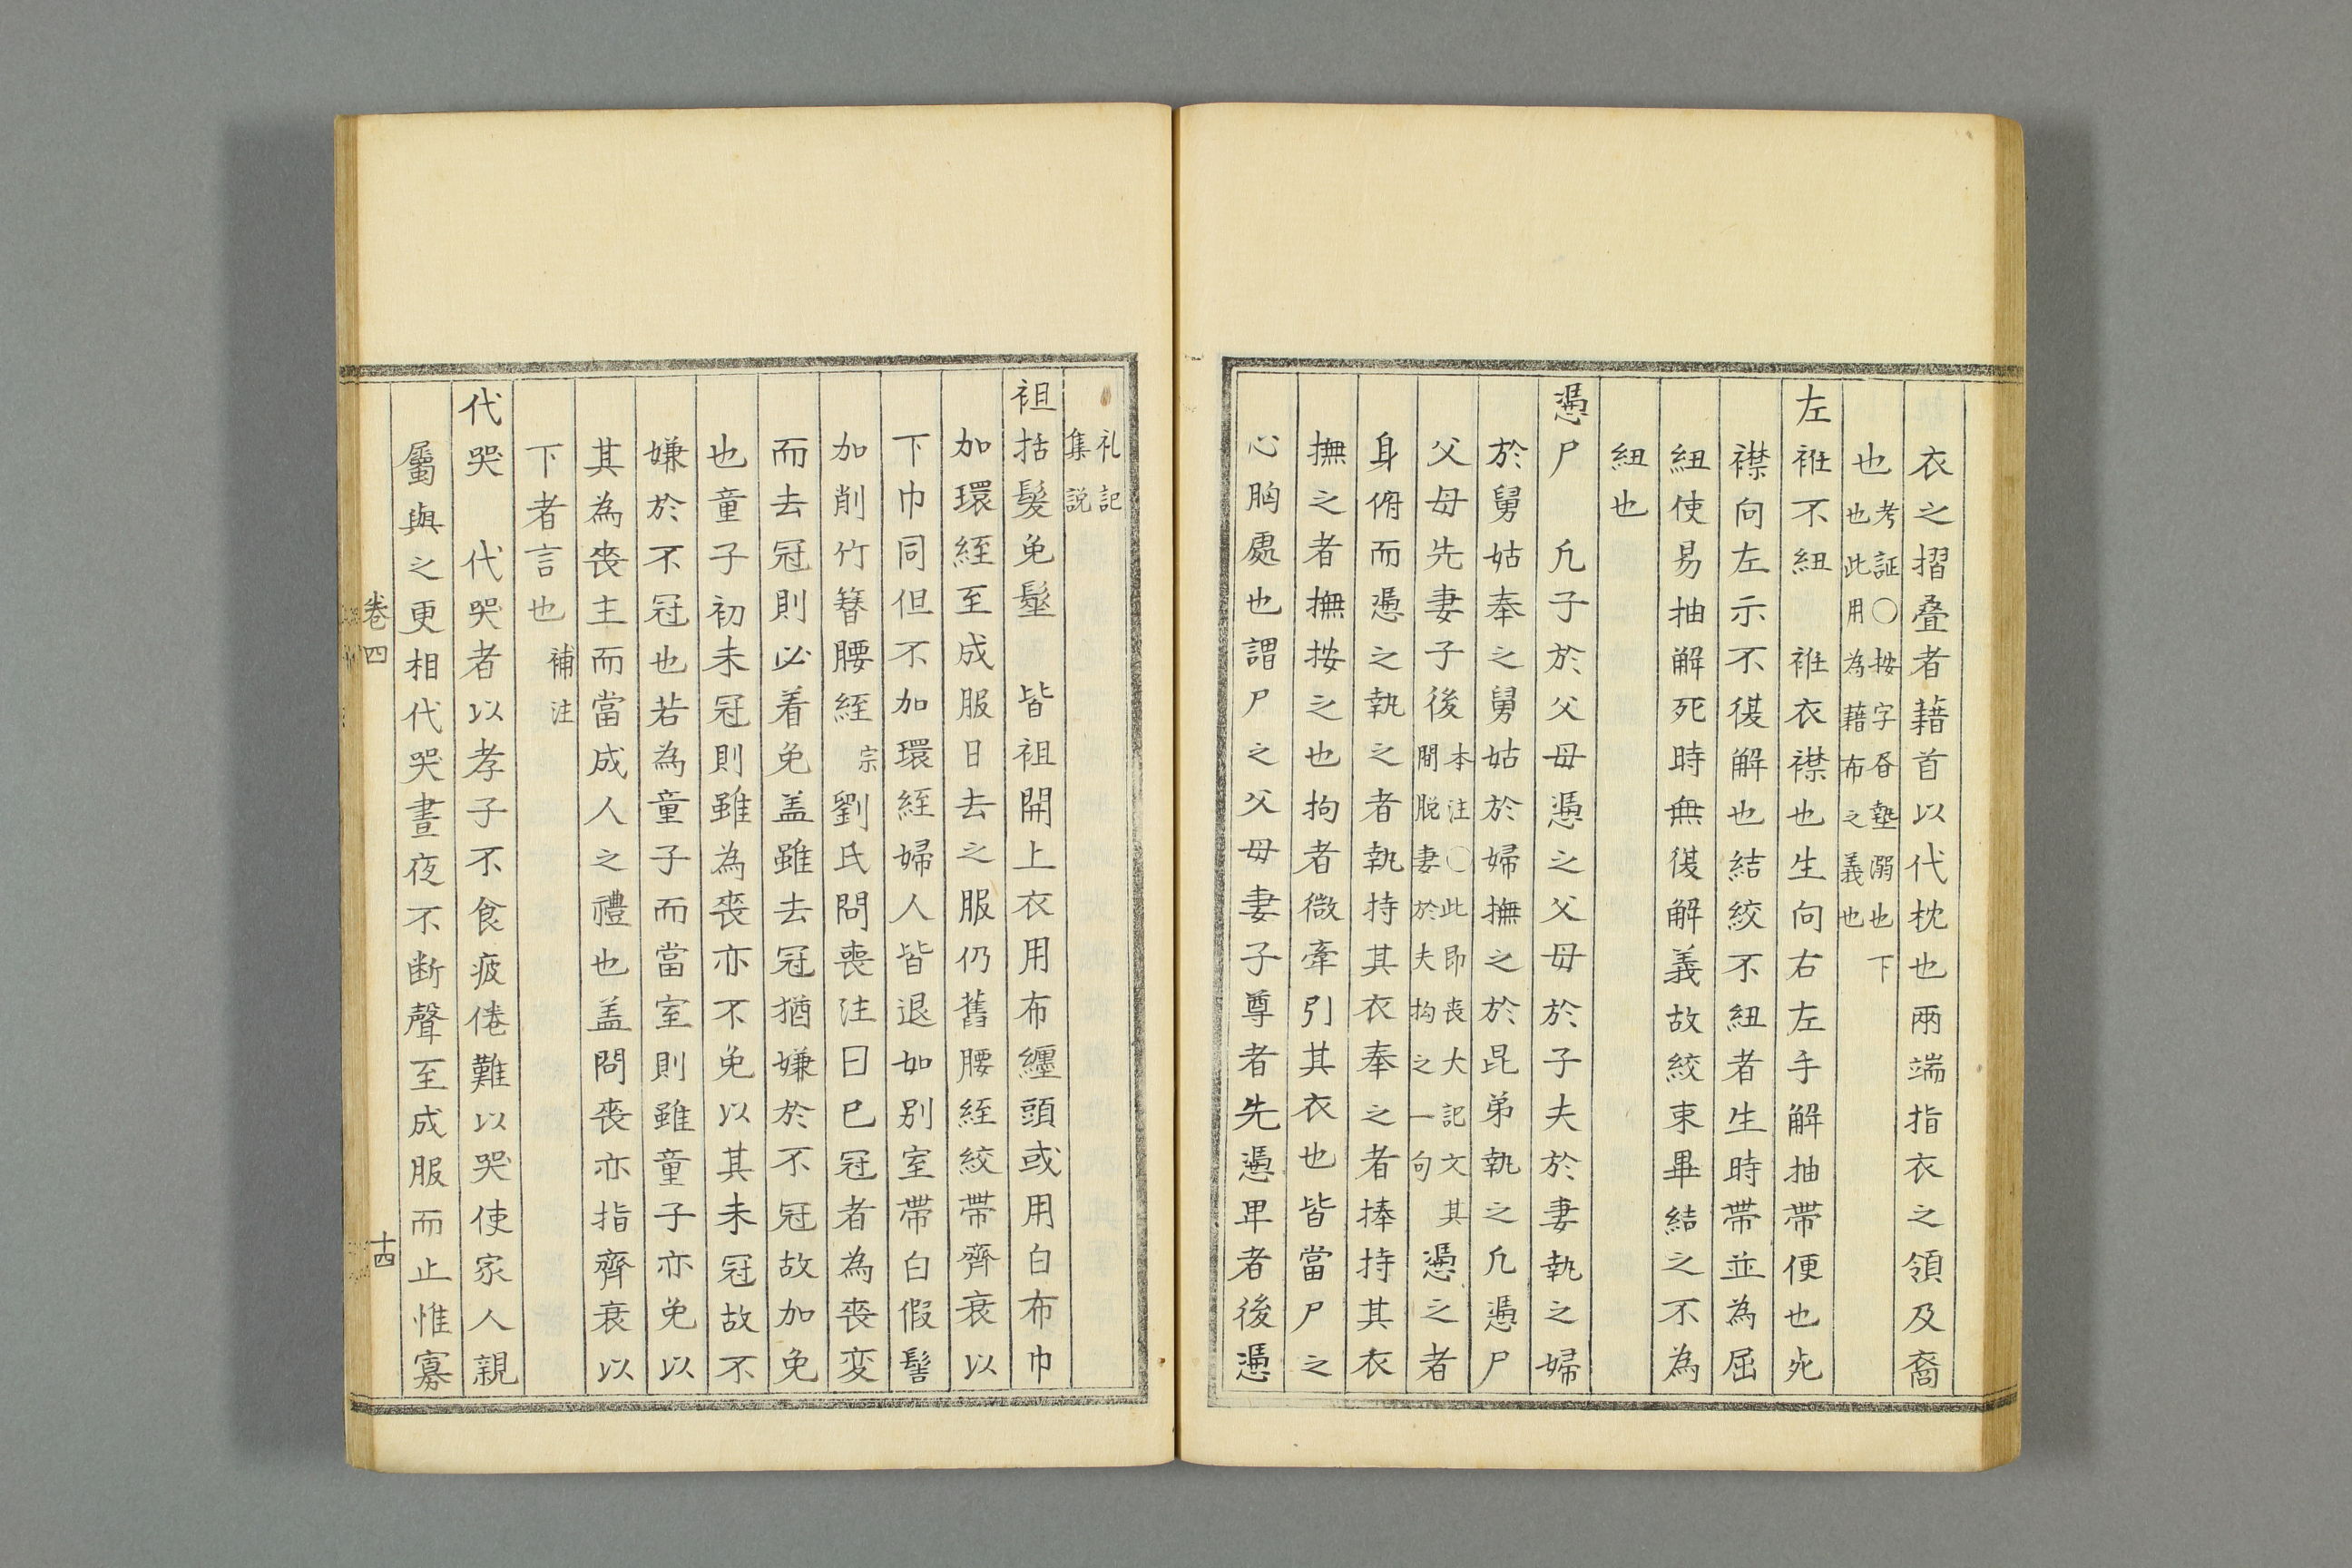 衣之摺疊者藉首以代枕也兩端指衣之領及裔
也考証〇按字㫺墊溺也下也此用為藉布之義也
左袵不紐　袵衣襟也生向右左手解抽帶便也死
襟向左示不復解也結絞不紐者生時帶並為屈
紐使易抽解死時無復解義故絞束畢結之不為
紐也
憑尸　凢子於父母憑之父母於子夫於妻執之婦
於舅姑奉之舅姑於婦撫之於昆弟執之凢憑尸
父母先妻子後本注〇此即喪大記文其間脱妻於夫拘之一句憑之者
身俯而憑之執之者執持其衣奉之者捧持其衣
撫之者撫按之也拘者微牽引其衣也皆當尸之
心胸處也謂尸之父母妻子尊者先憑卑者後憑
礼記集説
袒括髮免髽　皆袒開上衣用布纏頭或用白布巾
加環絰至成服日去之服仍舊腰絰絞帶齊衰以
下巾同但不加環絰婦人皆退如别室帶白假髻
加削竹簪腰絰宗劉氏問喪注曰已冠者為喪変
而去冠則必着免盖雖去冠猶嫌於不冠故加免
也童子初未冠則雖為喪亦不免以其未冠故不
嫌於不冠也若為童子而當室則雖童子亦免以
其為喪主而當成人之禮也盖問喪亦指齊衰以
下者言也補注
代哭　代哭者以孝子不食疲倦難以哭使家人親
屬與之更相代哭晝夜不断聲至成服而止惟寡
卷四
十四